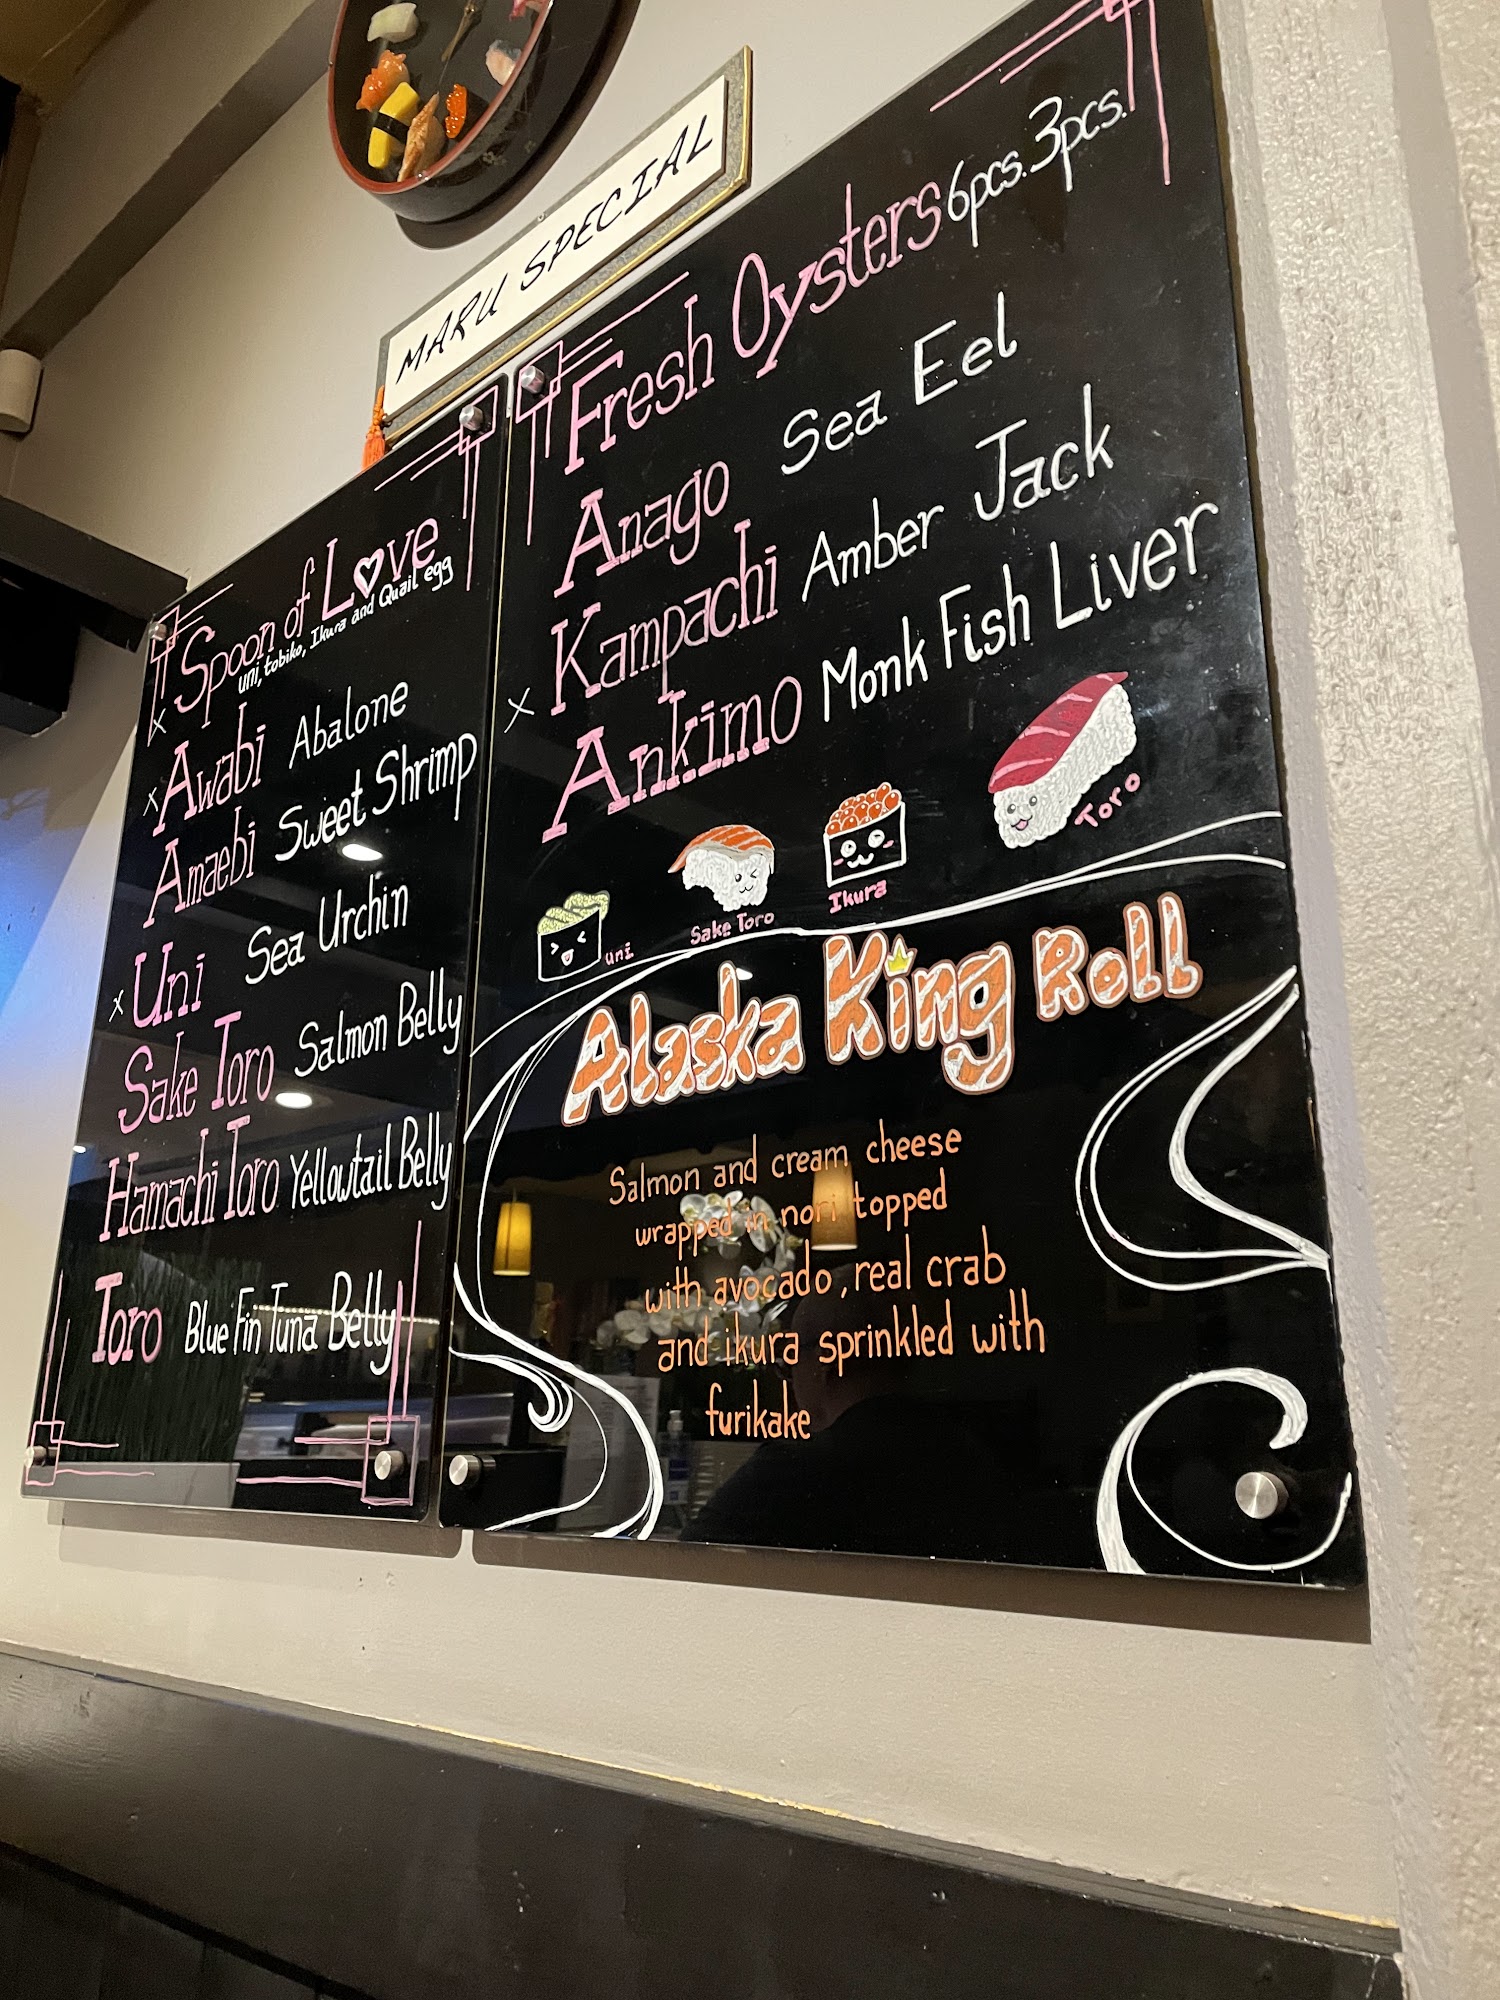 MARU SPECIAL
Spoon of Love
uni, tobiko, Ikura and Quail egg
x
x Awabi Abalone
Amaebi Sweet Shrimp
x Uni Sea Urchin
Sake Toro Salmon Belly
Hamachi Toro Yellowtail Belly
Toro Blue Fin Tuna Belly
Fresh Oysters 6pcs. 3pcs.
Anago Sea Eel
Kampachi Amber Jack
x
Ankimo Monk Fish Liver
uni
Sake Toro
Ikura
Toro
Alaska King Roll
Salmon and cream cheese
wrapped in nori topped
with avocado, real crab
and ikura sprinkled with
furikake